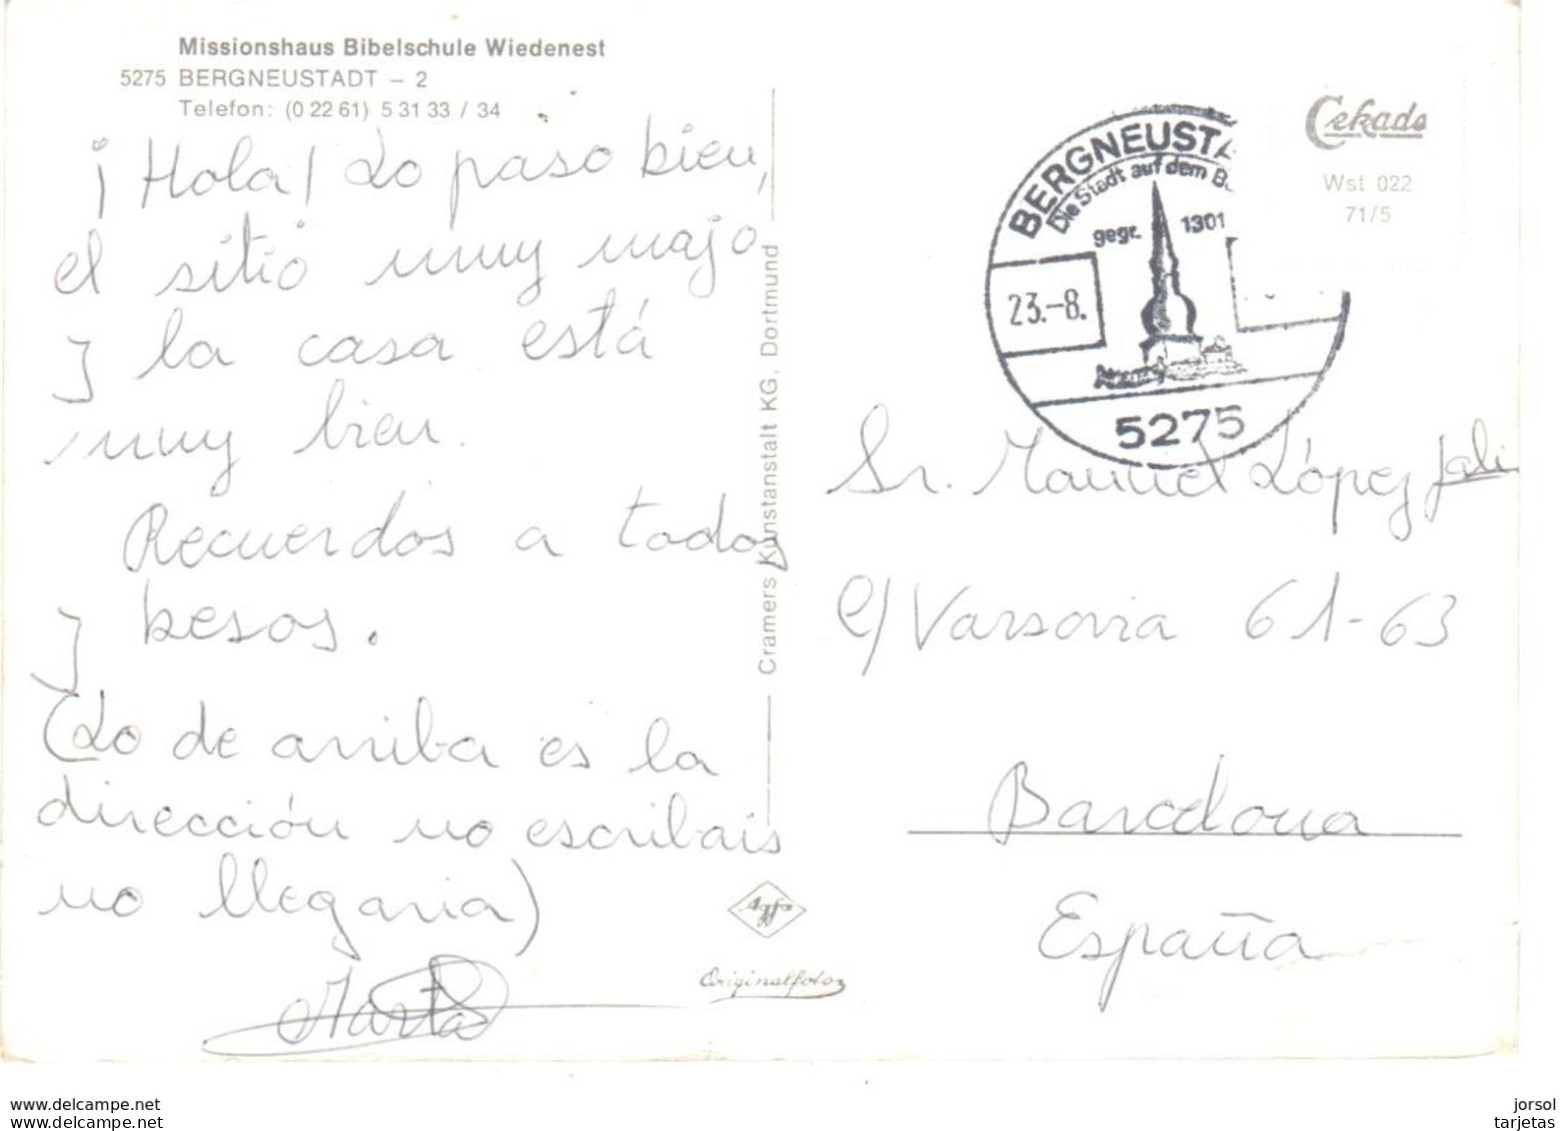 Missionshaus Bibelschule Wiedenest
5275 BERGNEUSTADT – 2
Telefon: (0 22 61) 5 31 33 / 34
¡Hola! Lo paso bien,
el sitio muy majo
y la casa está
muy bien.
Recuerdos a todos
y besos.
(Lo de arriba es la
dirección no escribais
no llegaria)
Marta
Cramers Kunstanstalt KG, Dortmund
Agfa
Originalfoto
BERGNEUSTA
Die Stadt auf dem B
gegr. 1301
23.-8.
5275
Cekade
Wst 022
71/5
Sr. Manuel López Jali
c/ Varsovia 61-63
Barcelona
España
www.delcampe.net
www.delcampe.net
jorsol
tarjetas